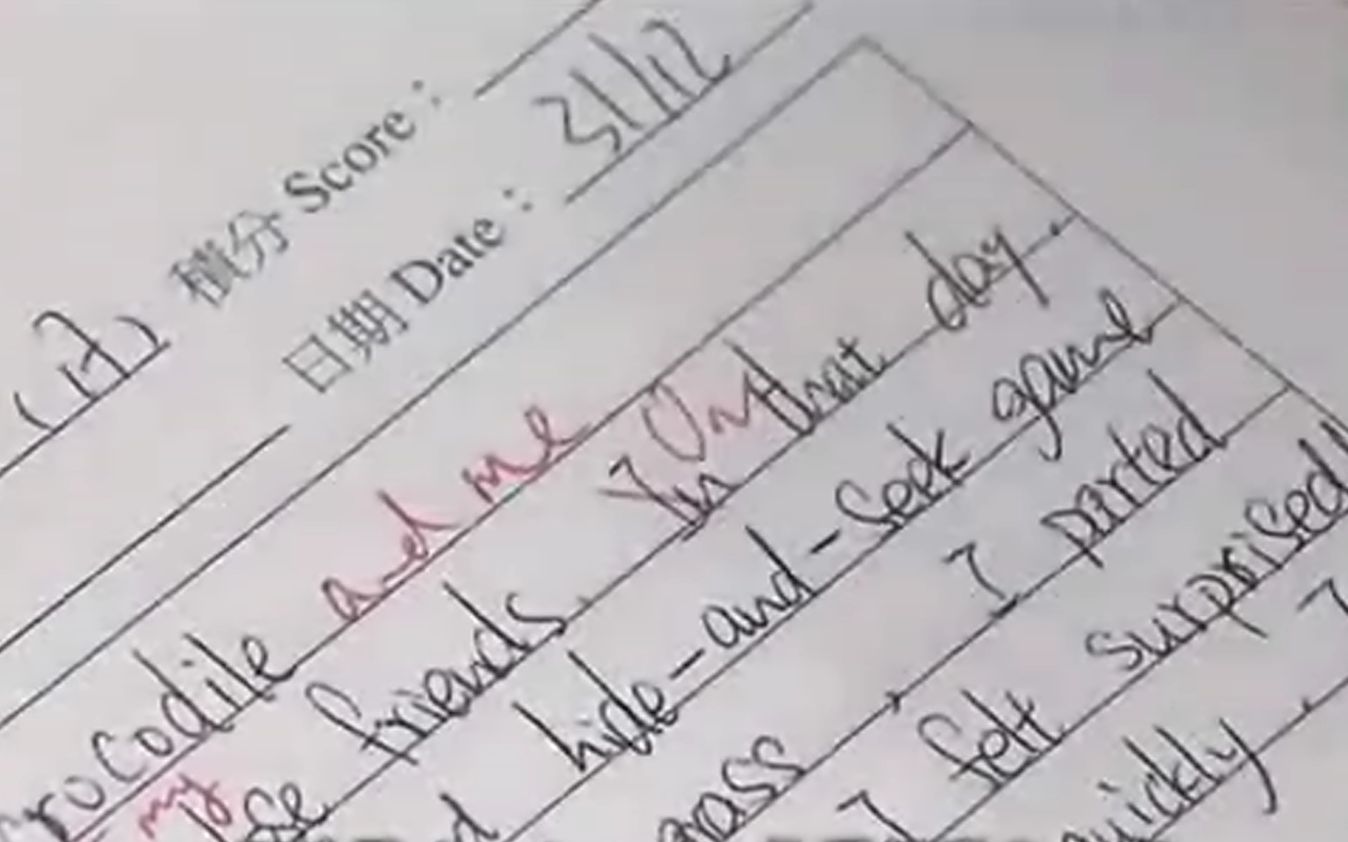 (17) 積分 Score :
日期 Date : 31/12
crocodile and me
my friends. In On that day.
hide-and-seek game
I parted
I felt surprised
quickly. I